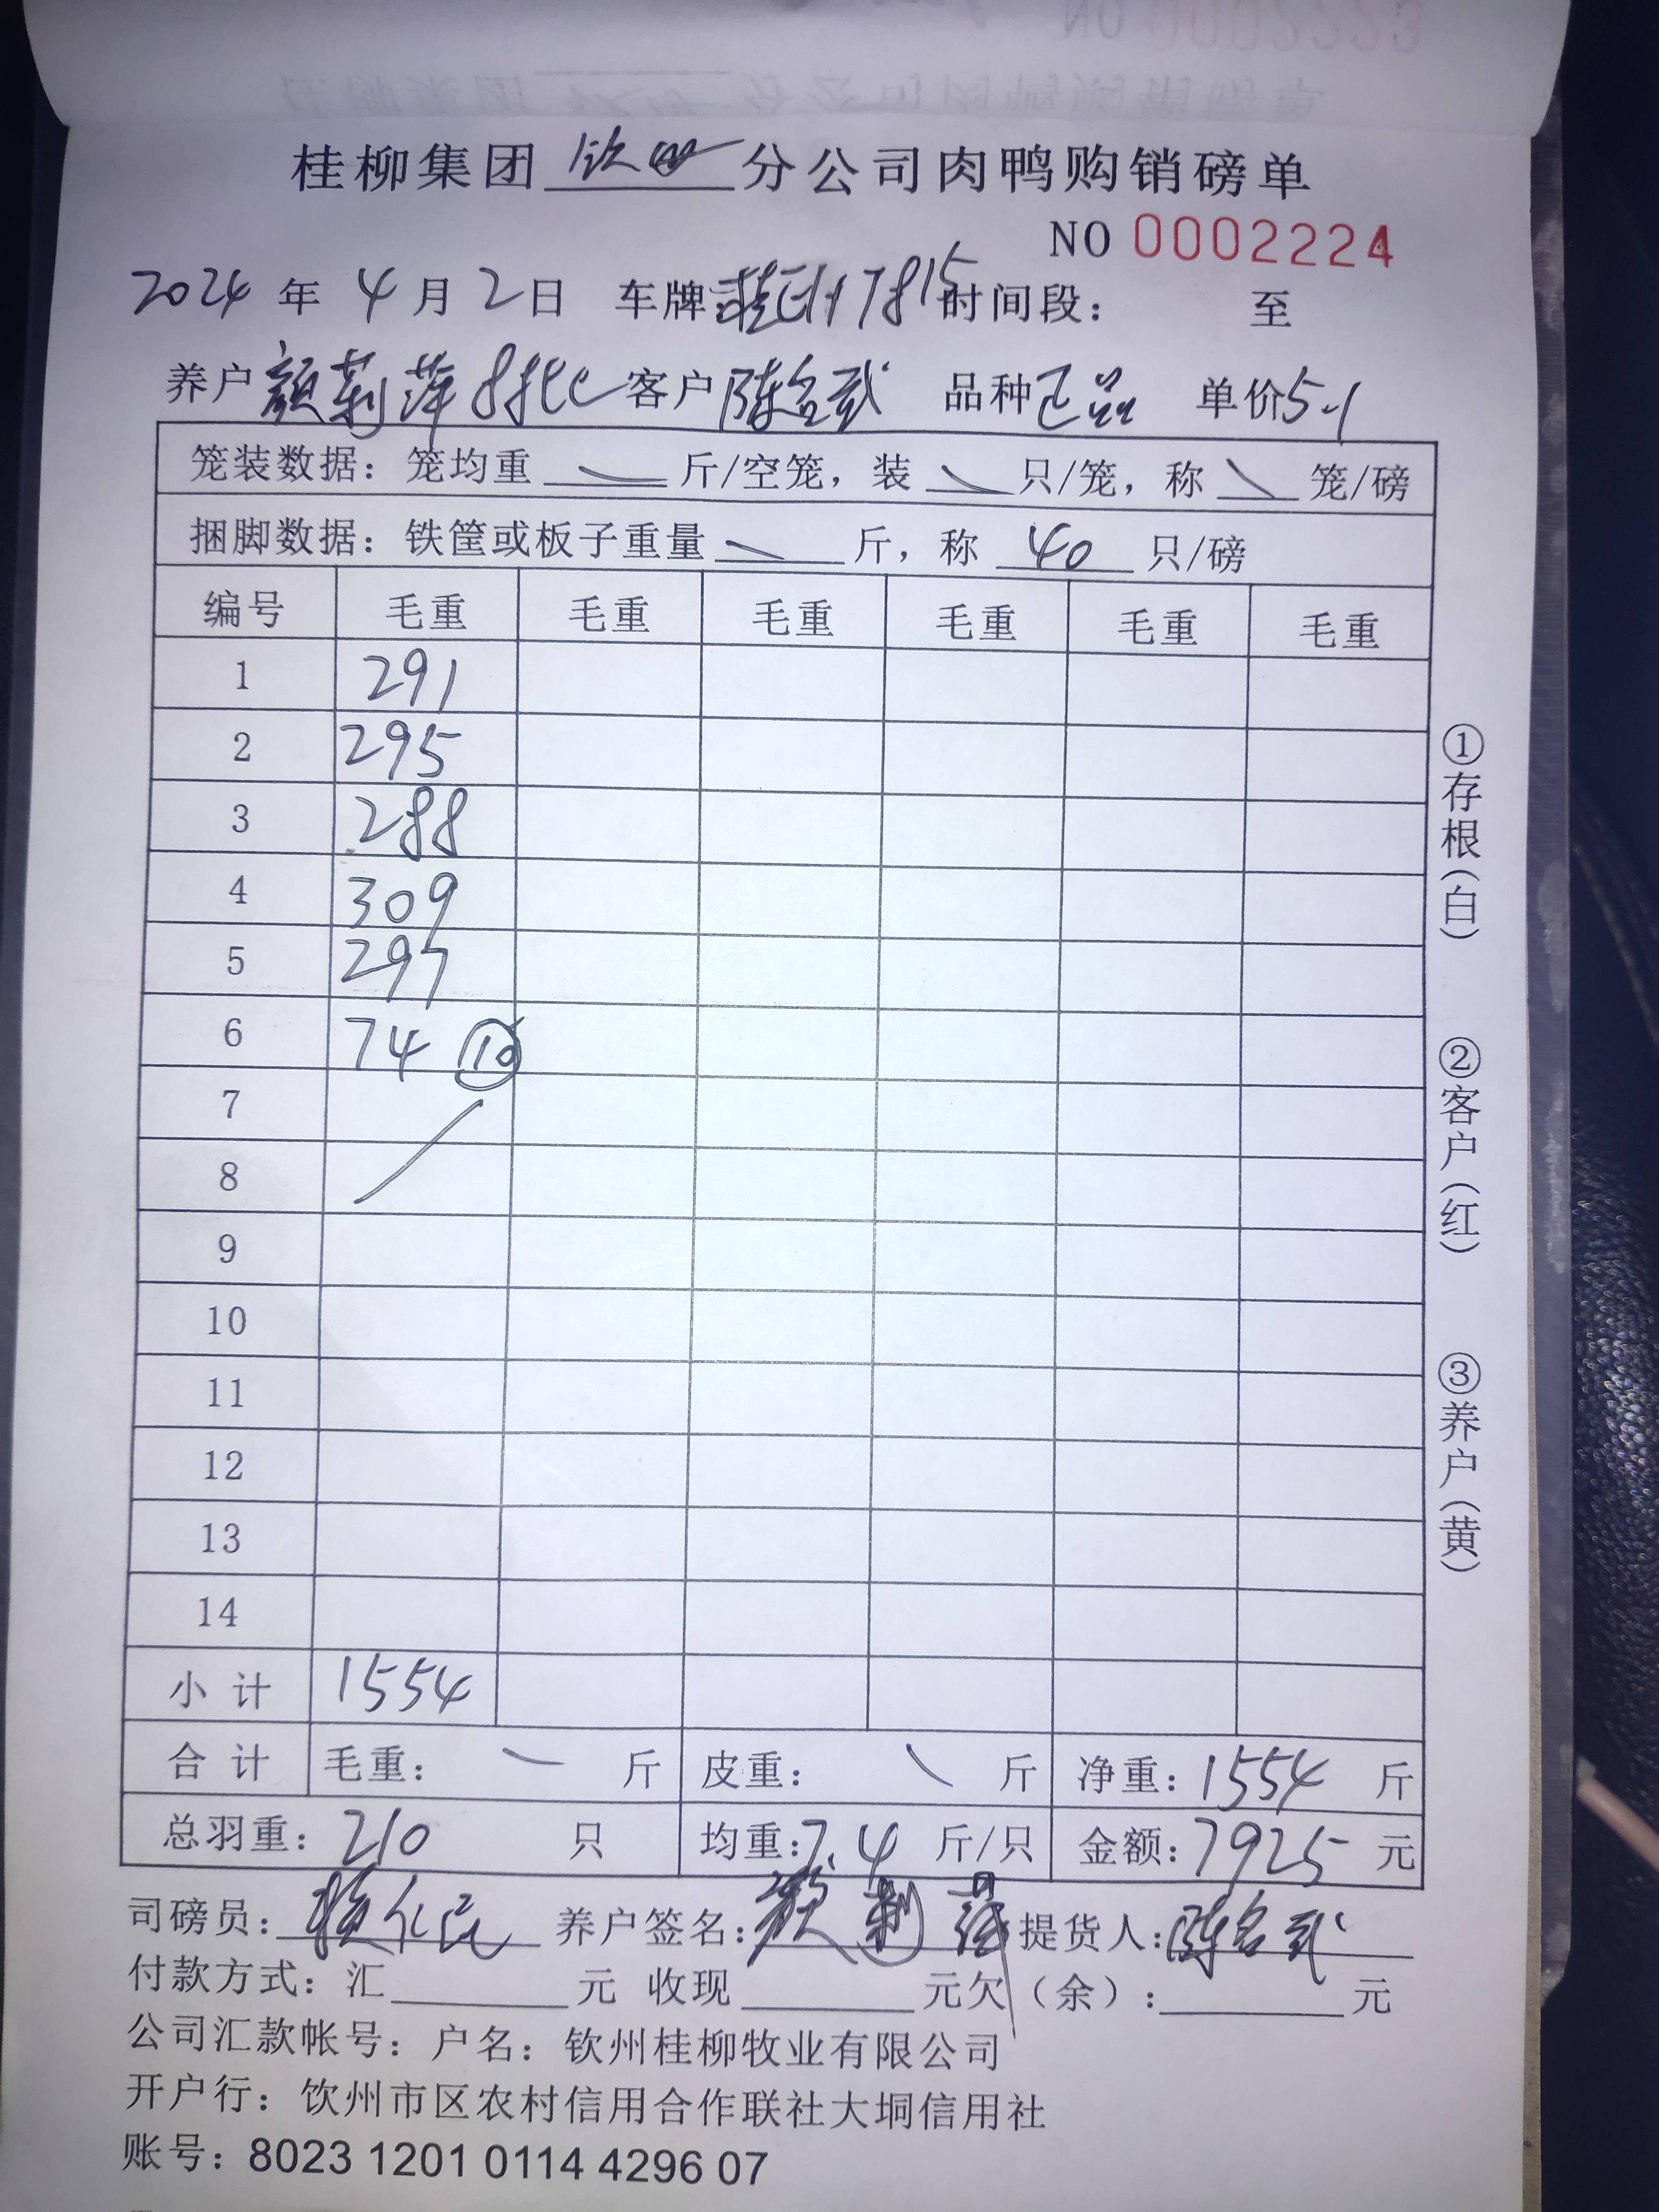 NO 0002223
桂柳集团 钦州 分公司肉鸭购销磅单
NO 0002224
2024 年 4 月 2 日 车牌: 7815 时间段: 至
养户 颜莉萍8批 客户 陈名武 品种 正品 单价 5.1
笼装数据: 笼均重 斤/空笼, 装 只/笼, 称 笼/磅
捆脚数据: 铁筐或板子重量 斤, 称 40 只/磅
编号 毛重 毛重 毛重 毛重 毛重 毛重
1 291
2 295
3 288
4 309
5 297
6 74 ⑩
7
8
9
10
11
12
13
14
小计 1554
合计 毛重: 斤 皮重: 斤 净重: 1554 斤
总羽重: 210 只 均重: 7.4 斤/只 金额: 7925 元
司磅员: 养户签名: 颜莉萍 提货人: 陈名武
付款方式: 汇 元 收现 元 欠 (余): 元
公司汇款帐号: 户名: 钦州桂柳牧业有限公司
开户行: 饮州市区农村信用合作联社大垌信用社
账号: 8023 1201 0114 4296 07
①存根(白)
②客户(红)
③养户(黄)